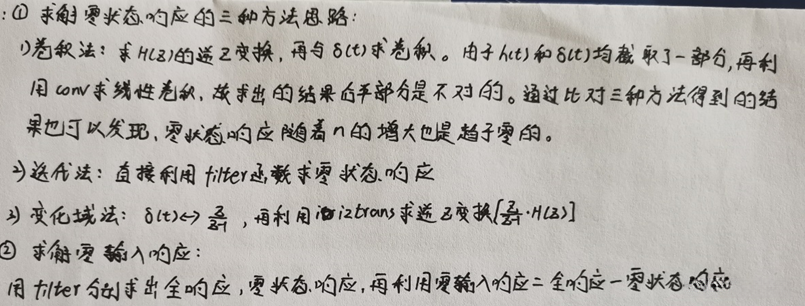 :① 求解零状态响应的三种方法思路:
1)卷积法: 求H(z)的逆Z变换,再与δ(t)求卷积。由于h(t)和δ(t)均截取了一部分,再利
用conv求线性卷积,故求出的结果后半部分是不对的。通过比对三种方法得到的结
果也可以发现,零状态响应随着n的增大也是趋于零的。
2)迭代法: 直接利用filter函数求零状态响应
3) 变化域法: δ(t)↔z/z-1,再利用iztrans求逆Z变换[z/z-1·H(z)]
② 求解零输入响应:
用filter分别求出全响应,零状态响应,再利用零输入响应=全响应-零状态响应